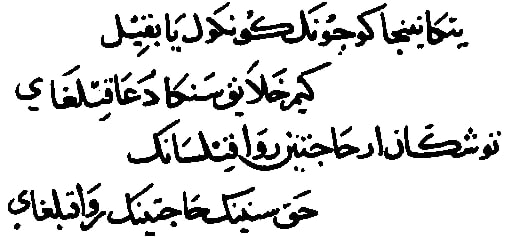 يتكانينجا كوجُونك كونكول يابقيل
كيم خلايق سنكا دعا قيلغاي
توشكانلار حاجتين روا قيلسانك
حق سنينك حاجتينك روا قيلغاي